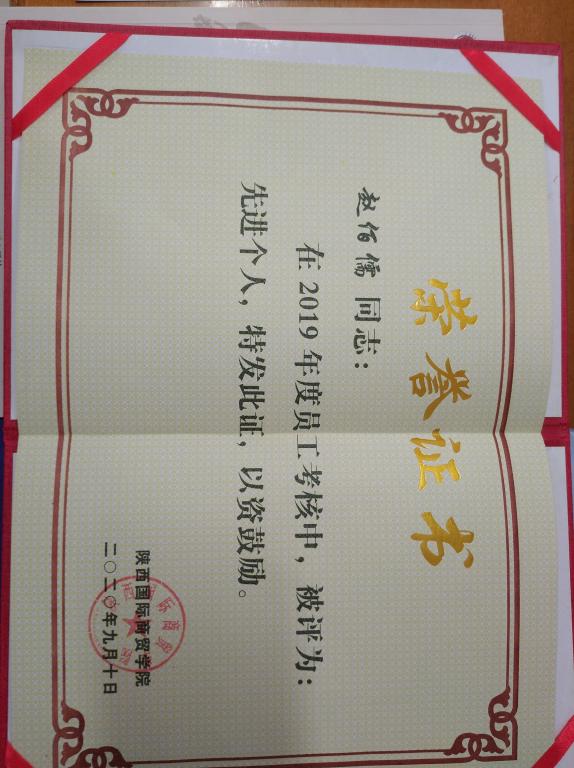 荣誉证书
赵佰儒 同志：
在 2019 年度员工考核中，被评为：
先进个人，特发此证，以资鼓励。
陕西国际商贸学院
二〇二〇年九月十日